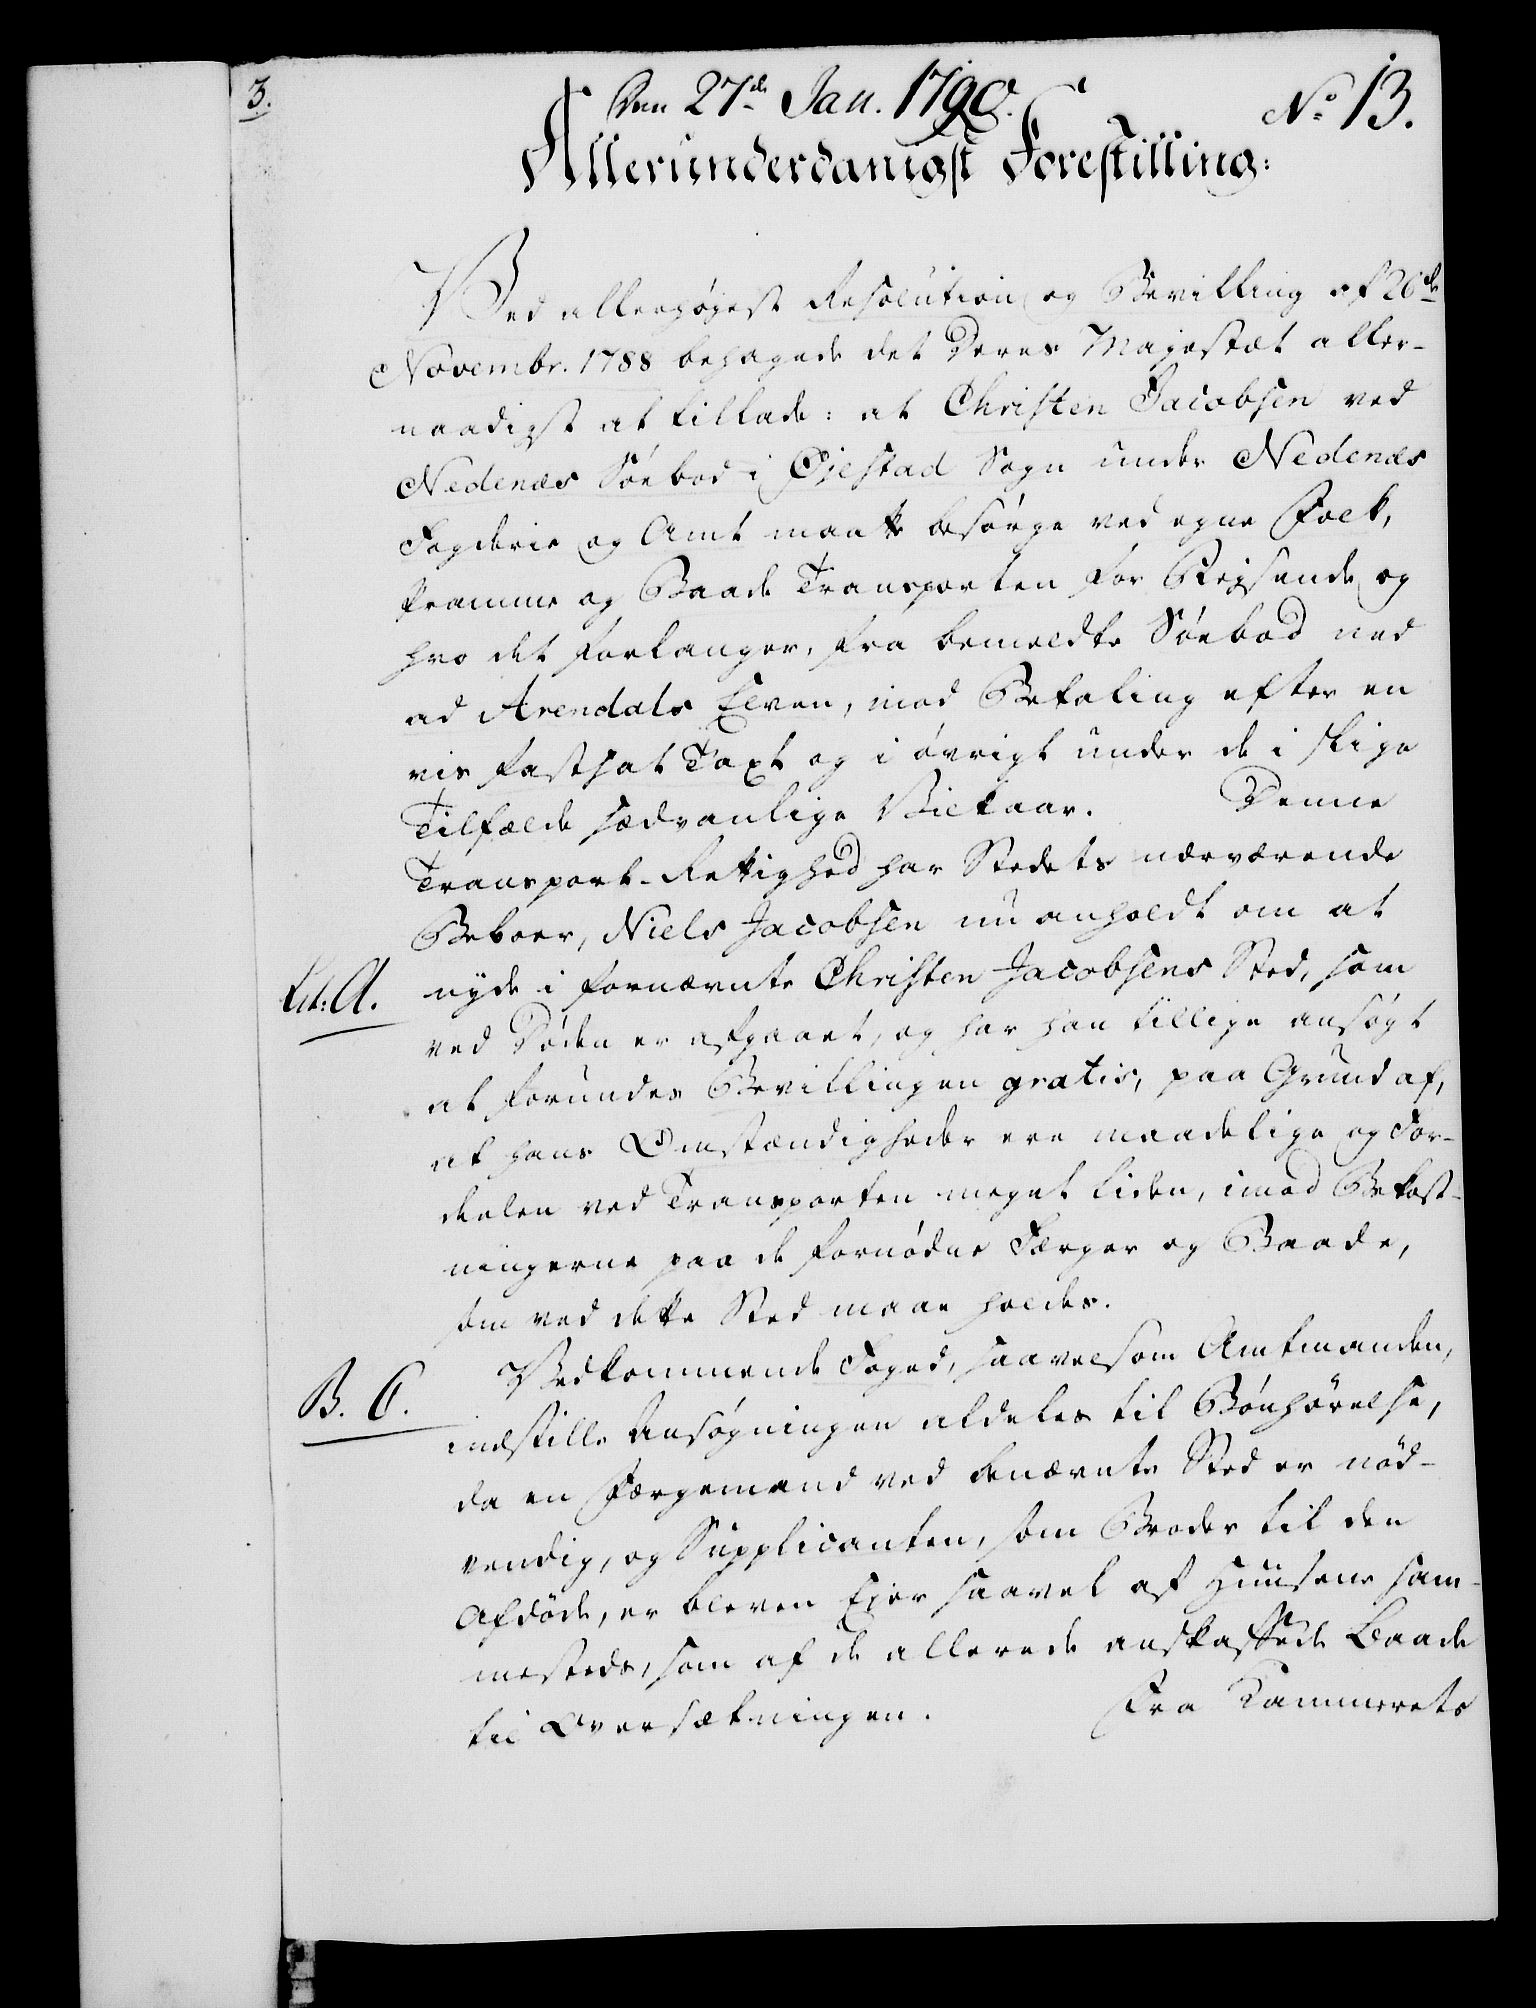 3.
Den 27de Jan. 1790.
No 13.
Allerunderdanigst Forestilling:
Ved allerhøyest Resolution og Bevilling af 26de
Novembr. 1788 behagede det Deres Majestæt aller-
naadigst at tillade: at Christen Jacobsen ved
Nedenæs Söebod i Öjestad Sogn under Nedenæs
Fogderie og Amt maatte besörge ved egne Folk,
Pramme og Baade Transporten for Rejsende og
hvo det forlanger, fra bemeldte Söebod ned
ad Arendals Elven, mod Betaling efter en
vis fastsat Taxt og i övrigt under de i slige
Tilfælde sædvanlige Vilkaar. Denne
Transport-Rettighed har Stedets nærværende
Beboer, Niels Jacobsen nu anholdt om at
Lit: A.
nyde i fornævnte Christen Jacobsens Sted, som
ved Döden er afgaaet, og har han tillige ansögt
at forundes Bevillingen gratis, paa Grund af,
at hans Omstændigheder ere maadelige og For-
deelen ved Transporten meget liden, imod Bekost-
ningerne paa de fornödne Færger og Baade,
som ved dette Sted maae holdes.
B. C.
Vedkommende Foged, saavelsom Amtmanden,
indstille Ansögningen aldeles til Bönhörelse,
da en Færgemand ved benævnte Sted er nöd-
vendig, og Supplicanten, som Broder til den
Afdöde, er bleven Ejer saavel af Huusene sam-
mesteds, som af de allerede anskaffede Baade
til Oversætningen. Fra Kammerets